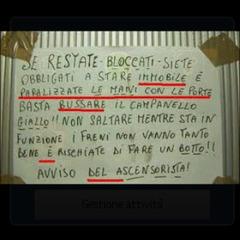 SE RESTATE - BLOCCATI - SIETE
OBBLIGATI A STARE IMMOBILE E
PARALIZZATE LE MANI CON LE PORTE
BASTA BUSSARE IL CAMPANELLO
GIALLO!! NON SALTARE MENTRE STA IN
FUNZIONE I FRENI NON VANNO TANTO
BENE E RISCHIATE DI FARE UN BOTTO!!
AVVISO DEL ASCENSORISTA!
Gestione attività